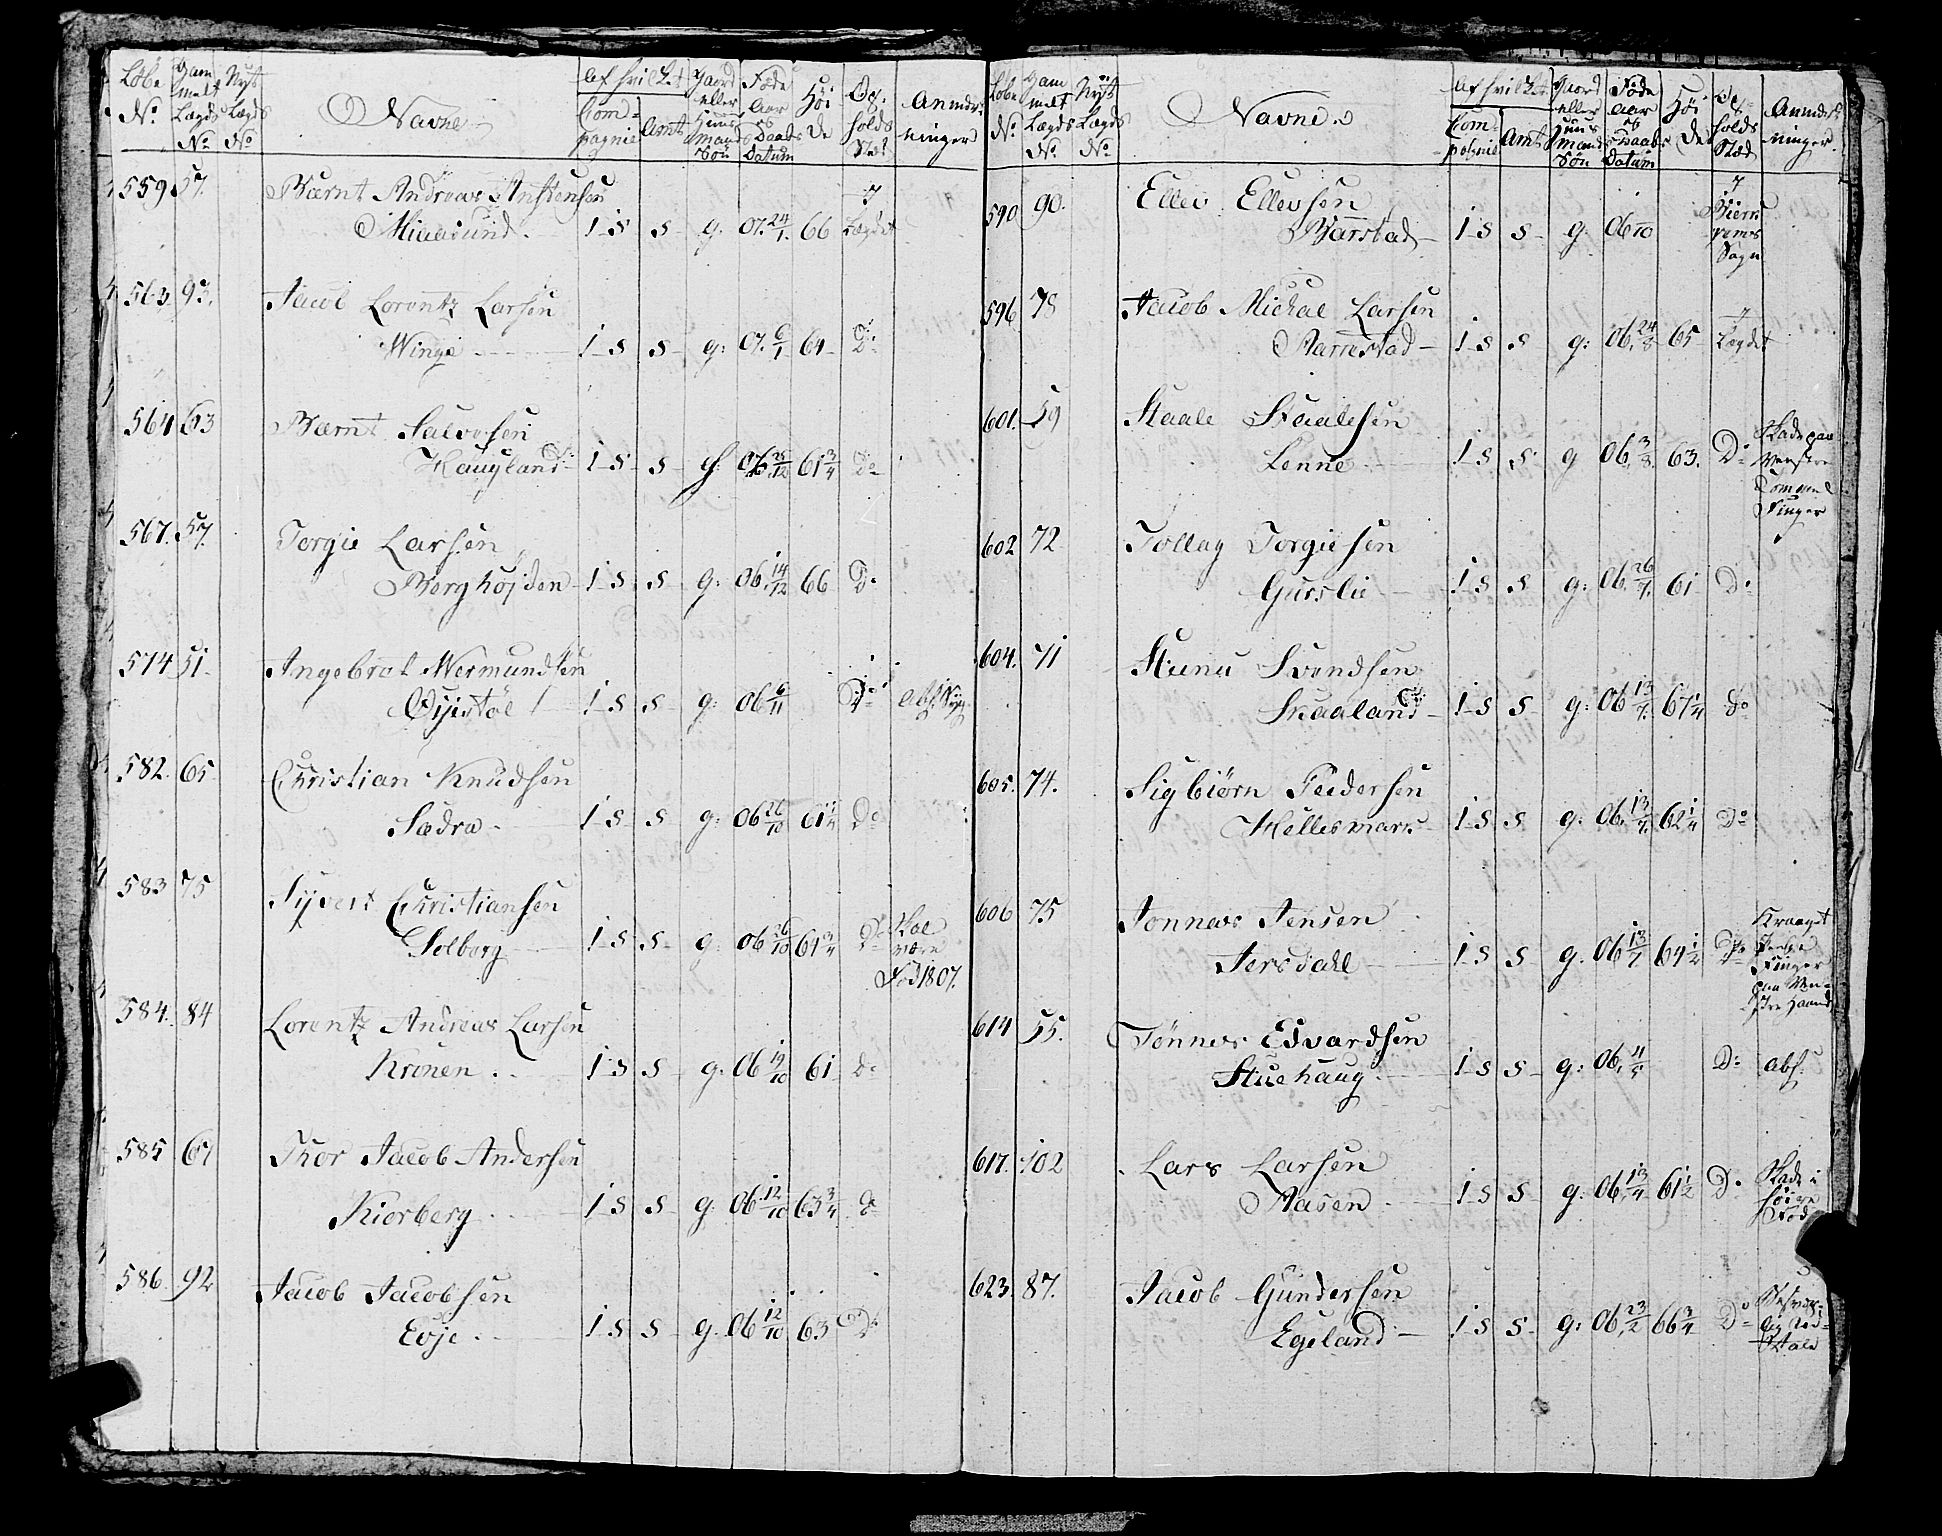 Løbe No. Gammelt Lægds No. Nyt Lægds No. Navne Af hvilket Compagnie Amt Gaard eller Huusmands Søn Føde Aar og Daabs Datum Høide Opholds Sted Anmærkninger
559 57. Bærnt Andreas Anstensen
Miaasund. 1 S S g. 07. 24/1. 66 i Lægdet
563 93. Jacob Lorentz Larsen
Winge 1 S S g: 07. 6/1 64 Do
564 63 Bærnt Salvesen
Haugland 1 S S 06. 25/12 61 3/4 Do
567. 57. Torgie Larsen
Berghøjden 1 S S g: 06. 14/12 66 Do
574 51. Angebret Wermundsen
1 S S g: 06 6/11 Do
582. 65. Christian Knudsen
Sædra 1 S S g: 06 26/10 61 1/4 Do
583 75 Sijvert Christiansen
Solberg 1 S S g. 06 26/10 64 3/4 Do Skal være
Fød 1807.
584. 84 Lorentz Andreas Larsen
Kronen 1 S S g. 06 19/10 61 do
585 67 Thor Jacob Andersen
Kiorberg 1 S S g: 06 12/10 63 3/4 do
586 92 Jacob Jacobsen
Eoje 1 S S g. 06 12/10 63 Do
Løbe No. Gammelt Lægds No. Nyt Lægds No. Navne Af hvilket Compagnie Amt Gaard eller Huusmands Søn Føde Aar og Daabs Datum Høide Opholds Sted Anmærkninger
590 90. Ellev Ellevsen
Barstad 1 S S g: 06 i
Sogn
596 78 Jacob Michal Larsen
Barrestad 1 S S g: 06. 24/8 65 i Lægdet
601. 59 Staale Staalesen
Lenne 1 S S g 06. 3/8. 63. Do Skade paa
Venstre
Tommel
Finger
602 72 Tollag Torgiesen
Gurslie 1 S S g: 06. 26/7. 61 Do
604. 71 Stienu Svendsen
Skaaland 1 S S g: 06 13/7. 67 1/4 do
605. 74. Sigbiørn Pedersen
Hellesmark 1 S S g: 06. 13/7. 62 1/4 Do
606 75 Tonnes Jensen
Jersdahl 1 S S g. 06 13/7 64 1/2 Do Kraaget
Finger
paa Ven-
stre Haand
614 55. Tønnes Edvardsen
Stuehaug 1 S S g: 06. 11/5 Do abs:
617. 102 Lars Larsen
Aasen 1 S S g: 06. 13/4 61 1/2 Do Skade i
høire
Fod
623. 87. Jacob Gundersen
Egeland 1 S S g: 06. 23/2 66 3/4 Do